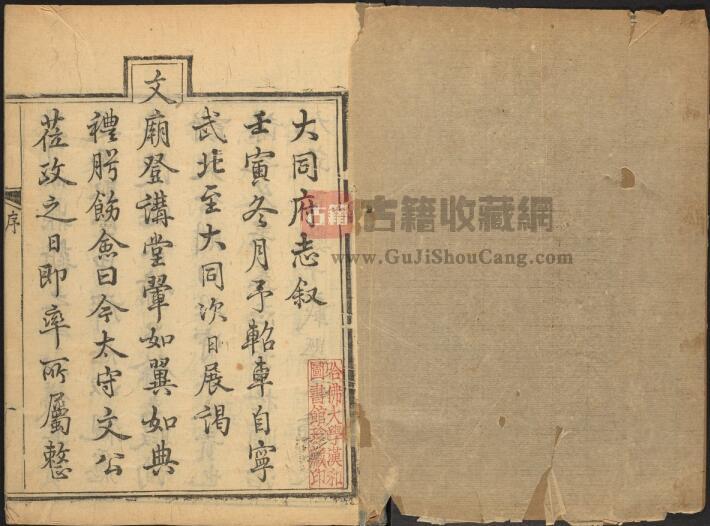 大同府志叙
壬寅冬月予軺車自寧
武北至大同次日展謁
文廟登講堂翬如翼如典
禮腭飭僉曰今太守文公
蒞政之日即率所屬整
序
一
哈佛大學漢和
圖書館珍藏印
古籍
古籍收藏網
www.GuJiShouCang.com